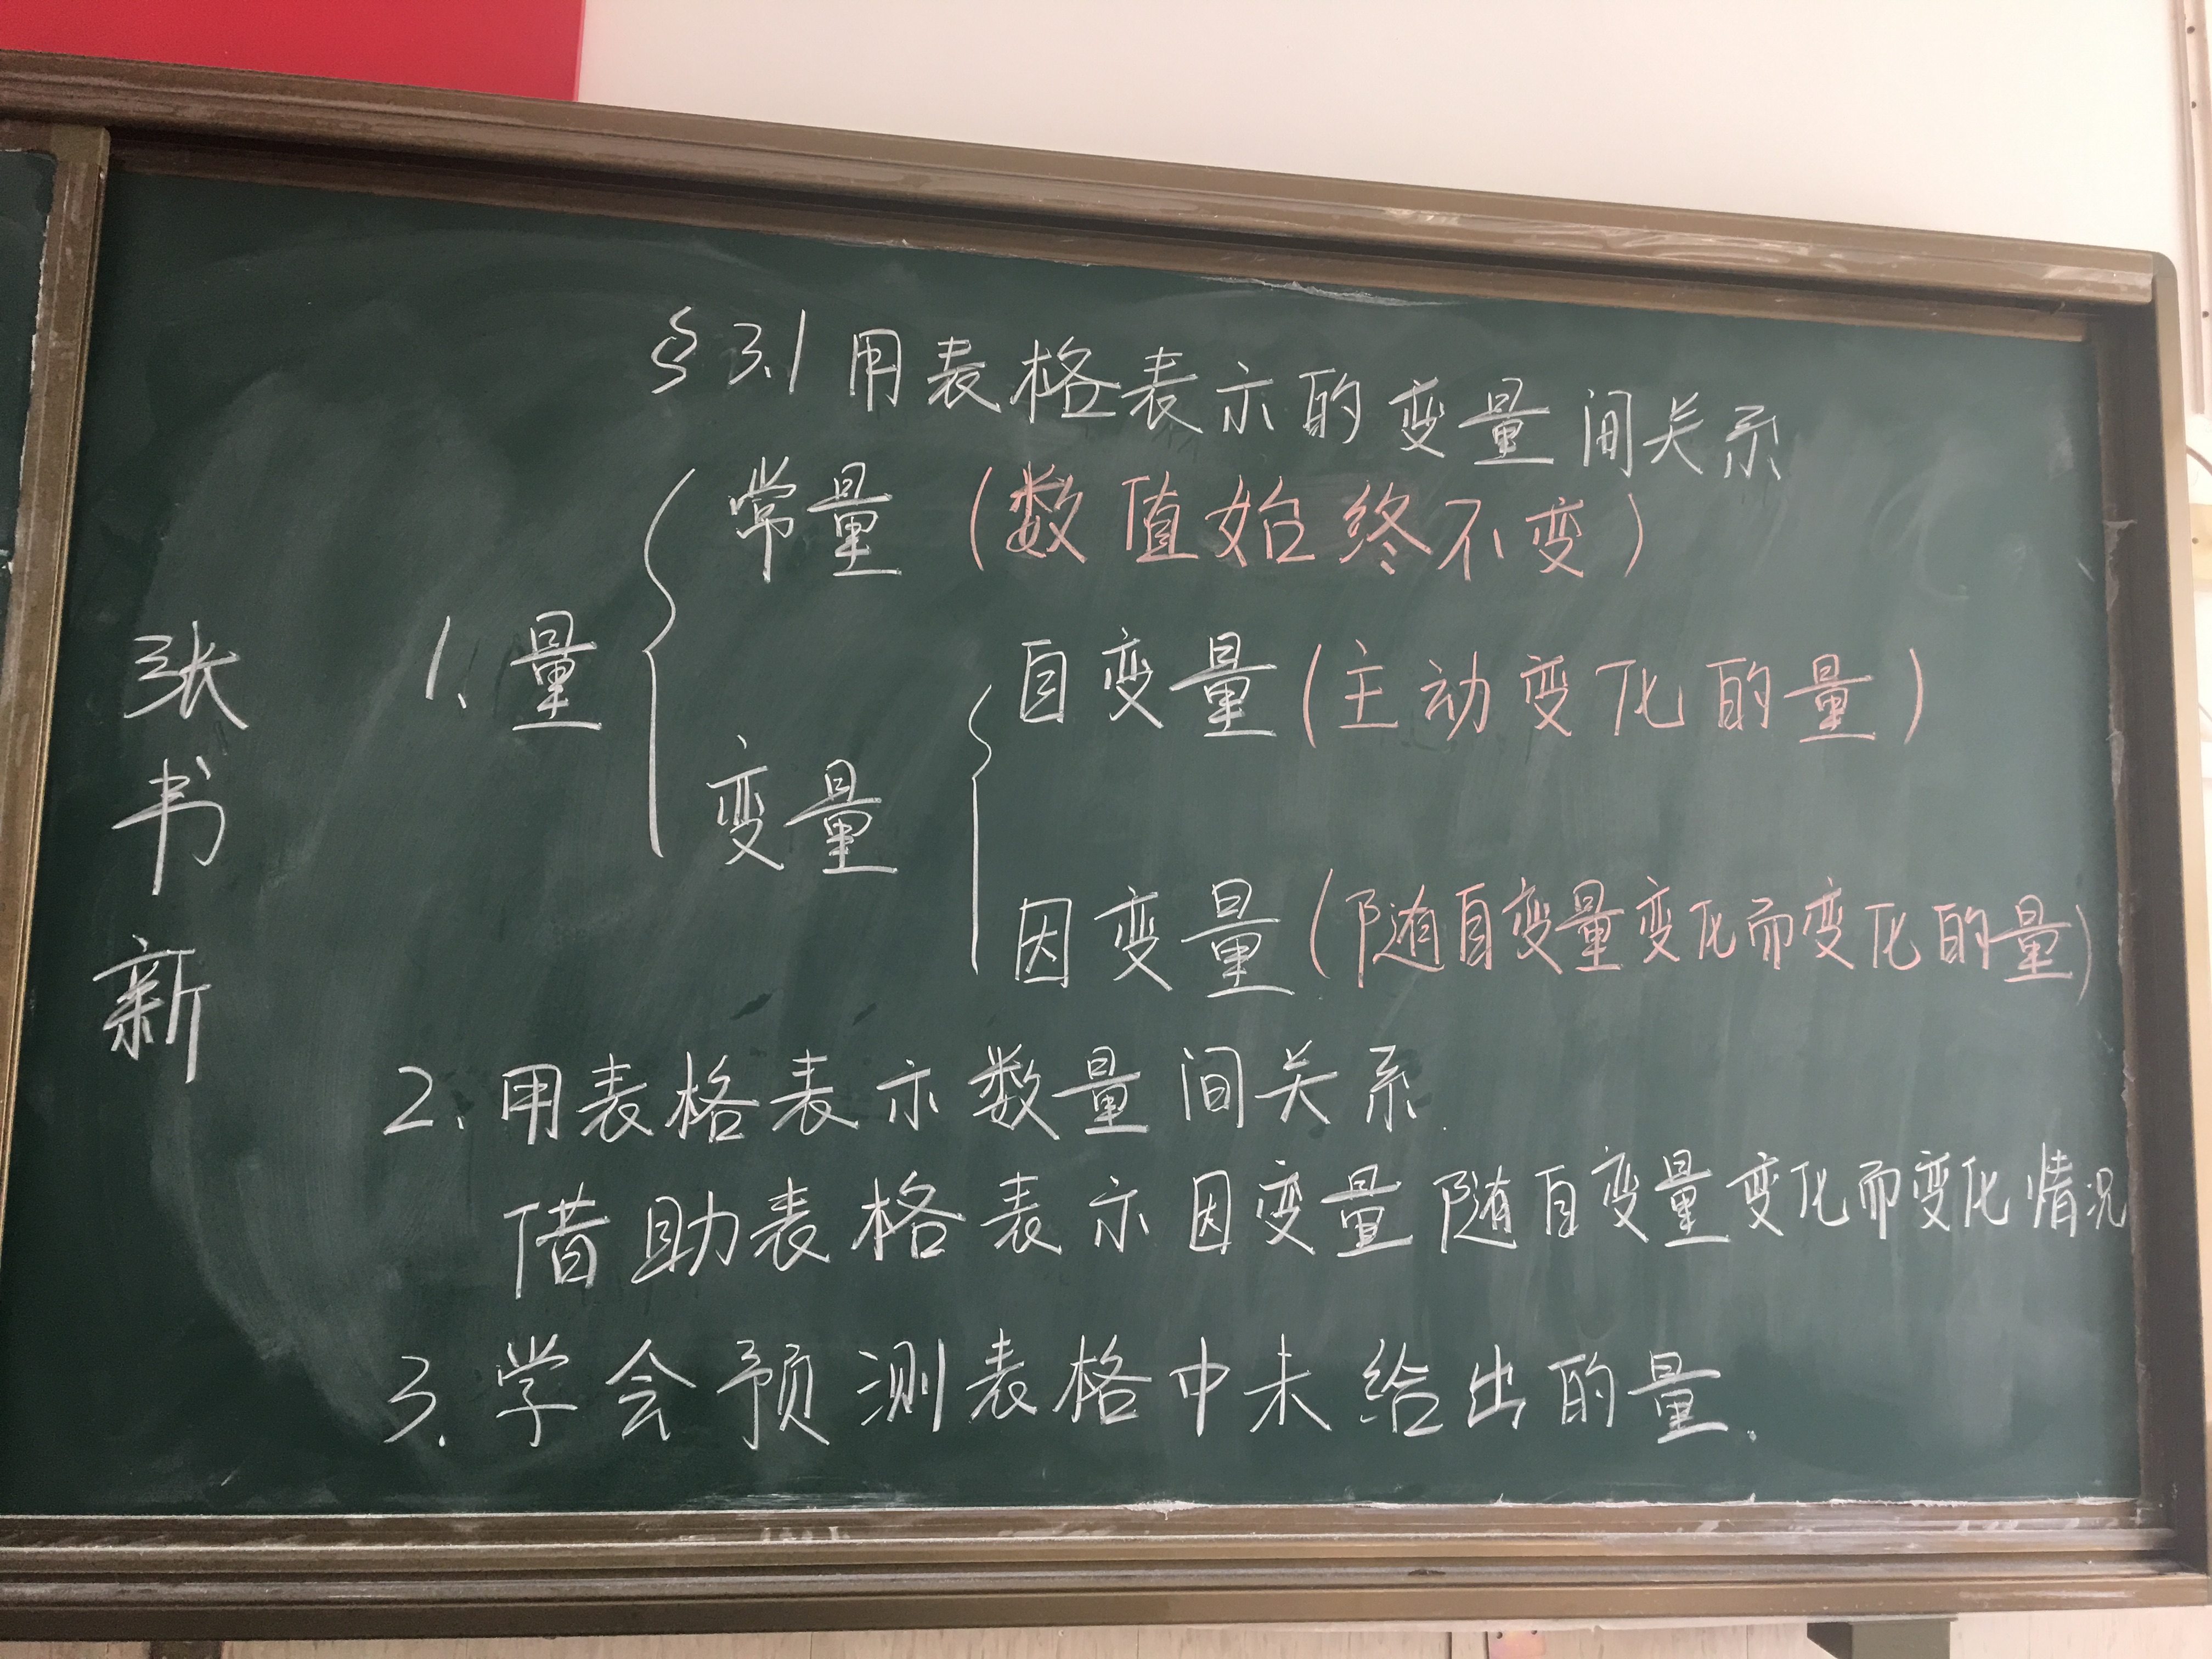 §3.1 用表格表示的变量间关系
常量（数值始终不变）
1、量
自变量（主动变化的量）
变量
因变量（随自变量变化而变化的量）
2、用表格表示数量间关系.
借助表格表示因变量随自变量变化而变化情况
3、学会预测表格中未给出的量.
张
书
新